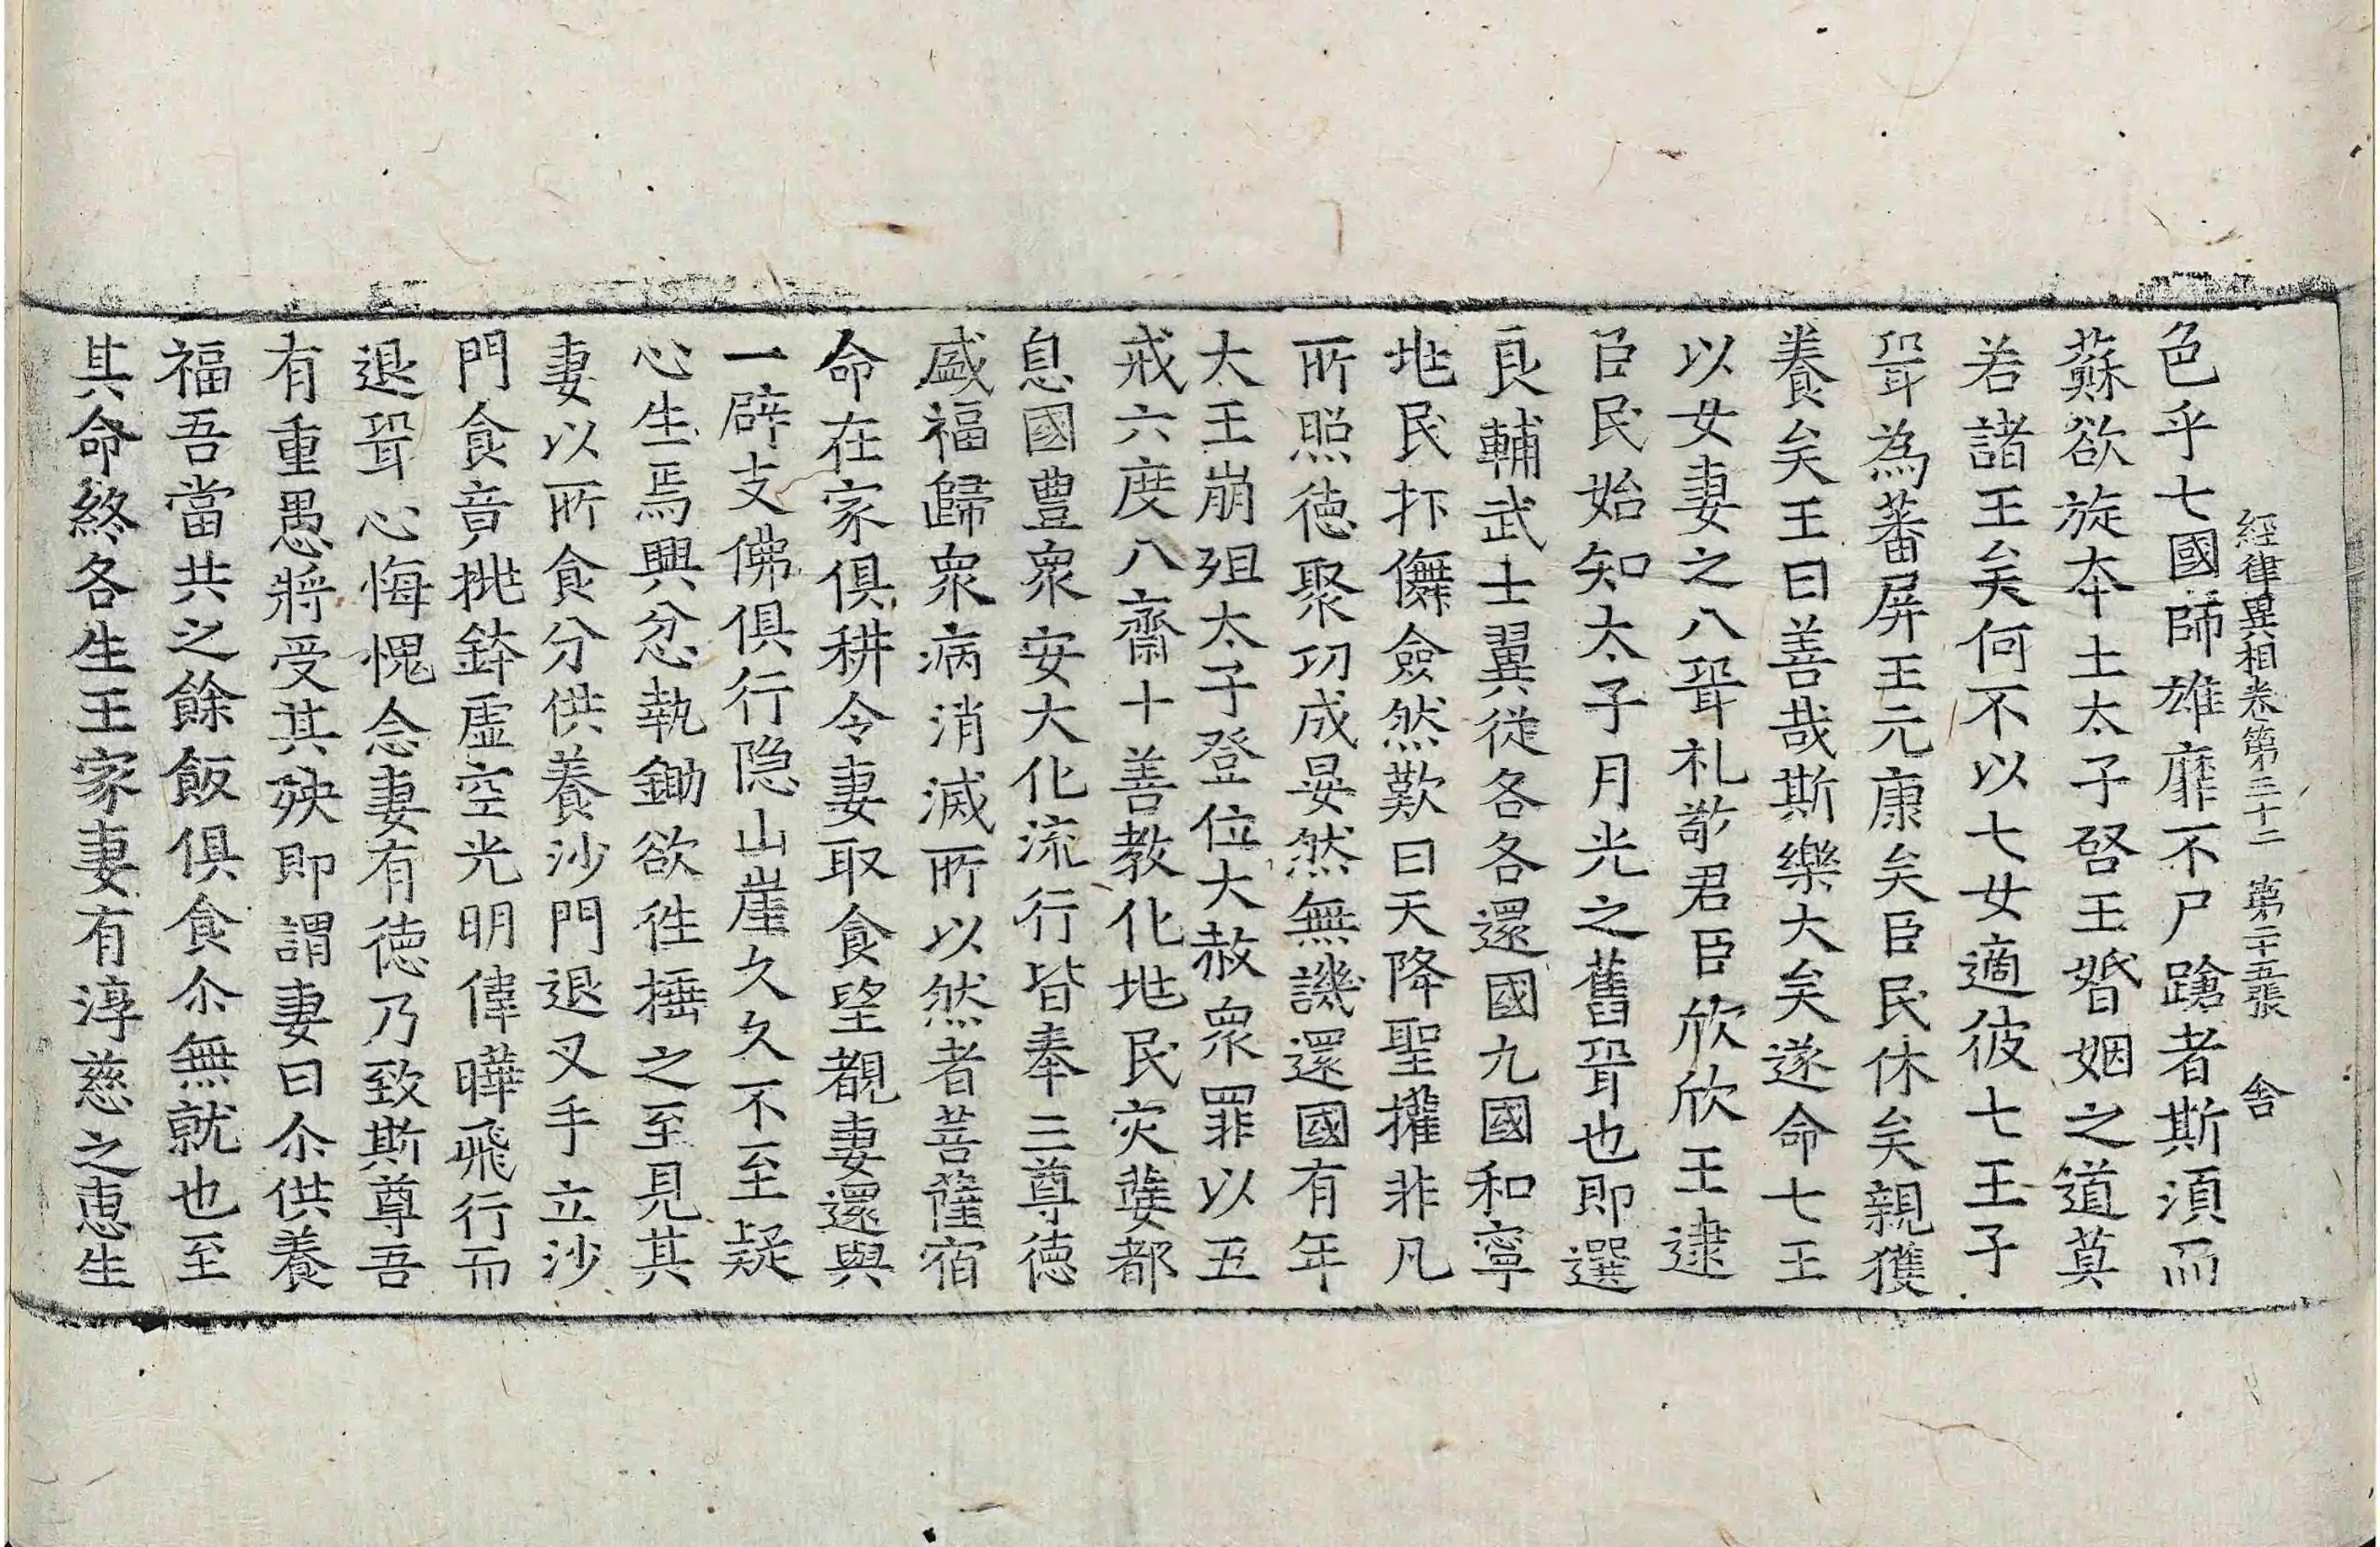 經律異相卷第三十二 第二十五張 舍
色乎七國師雄靡不尸蹌者斯須而
蘇欲旋夲土太子啓王婚姻之道莫
若諸王矣何不以七女適彼七王子
壻為蕃屏王元康矣臣民休矣親獲
養矣王曰善哉斯樂大矣遂命七王
以女妻之八壻礼敬君臣欣欣王逮
臣民始知太子月光之舊壻也即選
良輔武士翼從各各還國九國和寧
地民抃儛僉然歎曰天降聖㩲非凡
所照德聚功成晏然無譏還國有年
大王崩殂太子登位大赦衆罪以五
戒六度八齋十善教化地民灾㜸都
息國豊衆安大化流行皆奉三尊德
盛福歸衆病消滅所以然者菩薩宿
命在家俱耕令妻取食望覩妻還與
一辟支佛俱行隐山崖久久不至疑
心生焉興忿執鋤欲往捶之至見其
妻以所食分供養沙門退叉手立沙
門食竟抛鉢虛空光明偉曄飛行而
退壻心悔愧念妻有德乃致斯尊吾
有重愚將受其殃即謂妻曰尒供養
福吾當共之餘飯俱食尒無就也至
其命終各生王家妻有淳慈之恵生